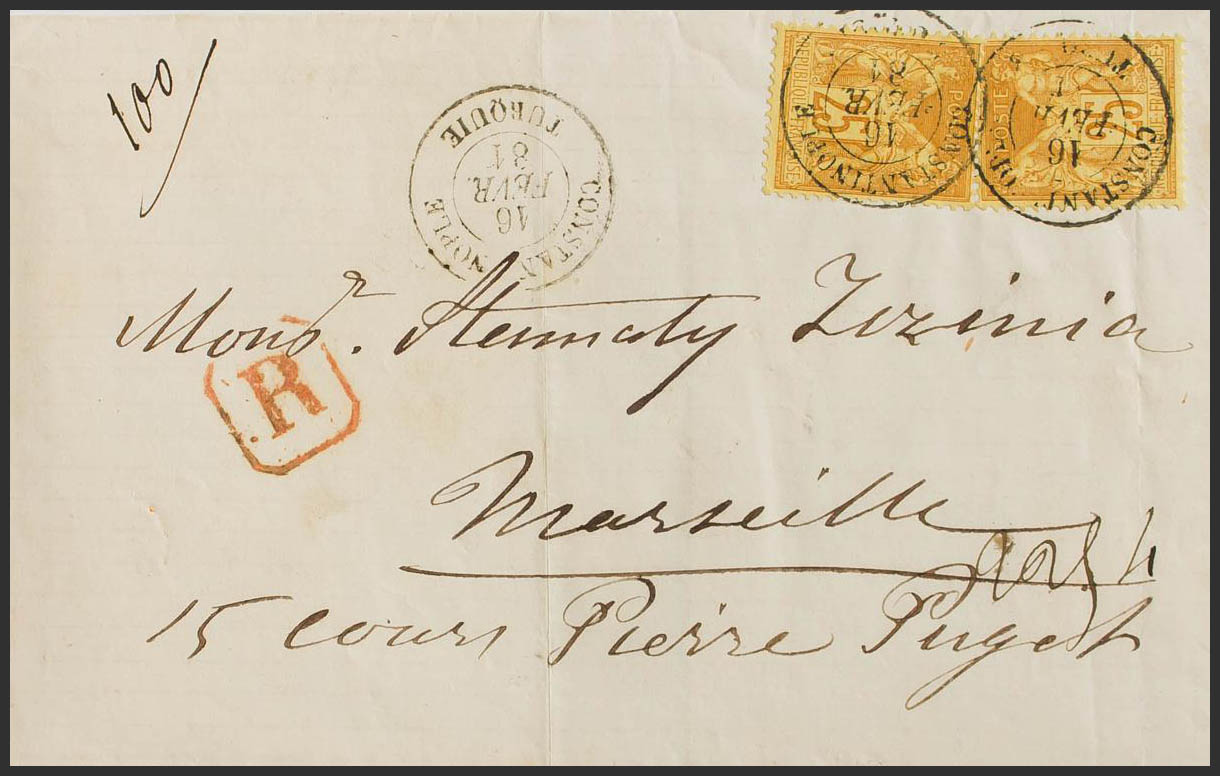 100
CONSTANTINOPLE
TURQUIE
16
FEVR.
81
CONSTANTINOPLE
16
FEVR.
81
25
CONSTANT
16
FEVR
POSTES
25
Monsr. Stamaty Zizinia
R
Marseille
15 Cours Pierre Puget